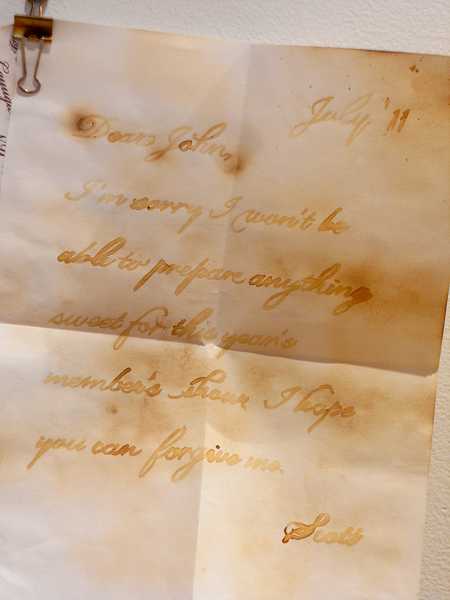 July '11
Dear John,
I'm sorry I won't be
able to prepare anything
sweet for this year's
member's show. I hope
you can forgive me.
Scott